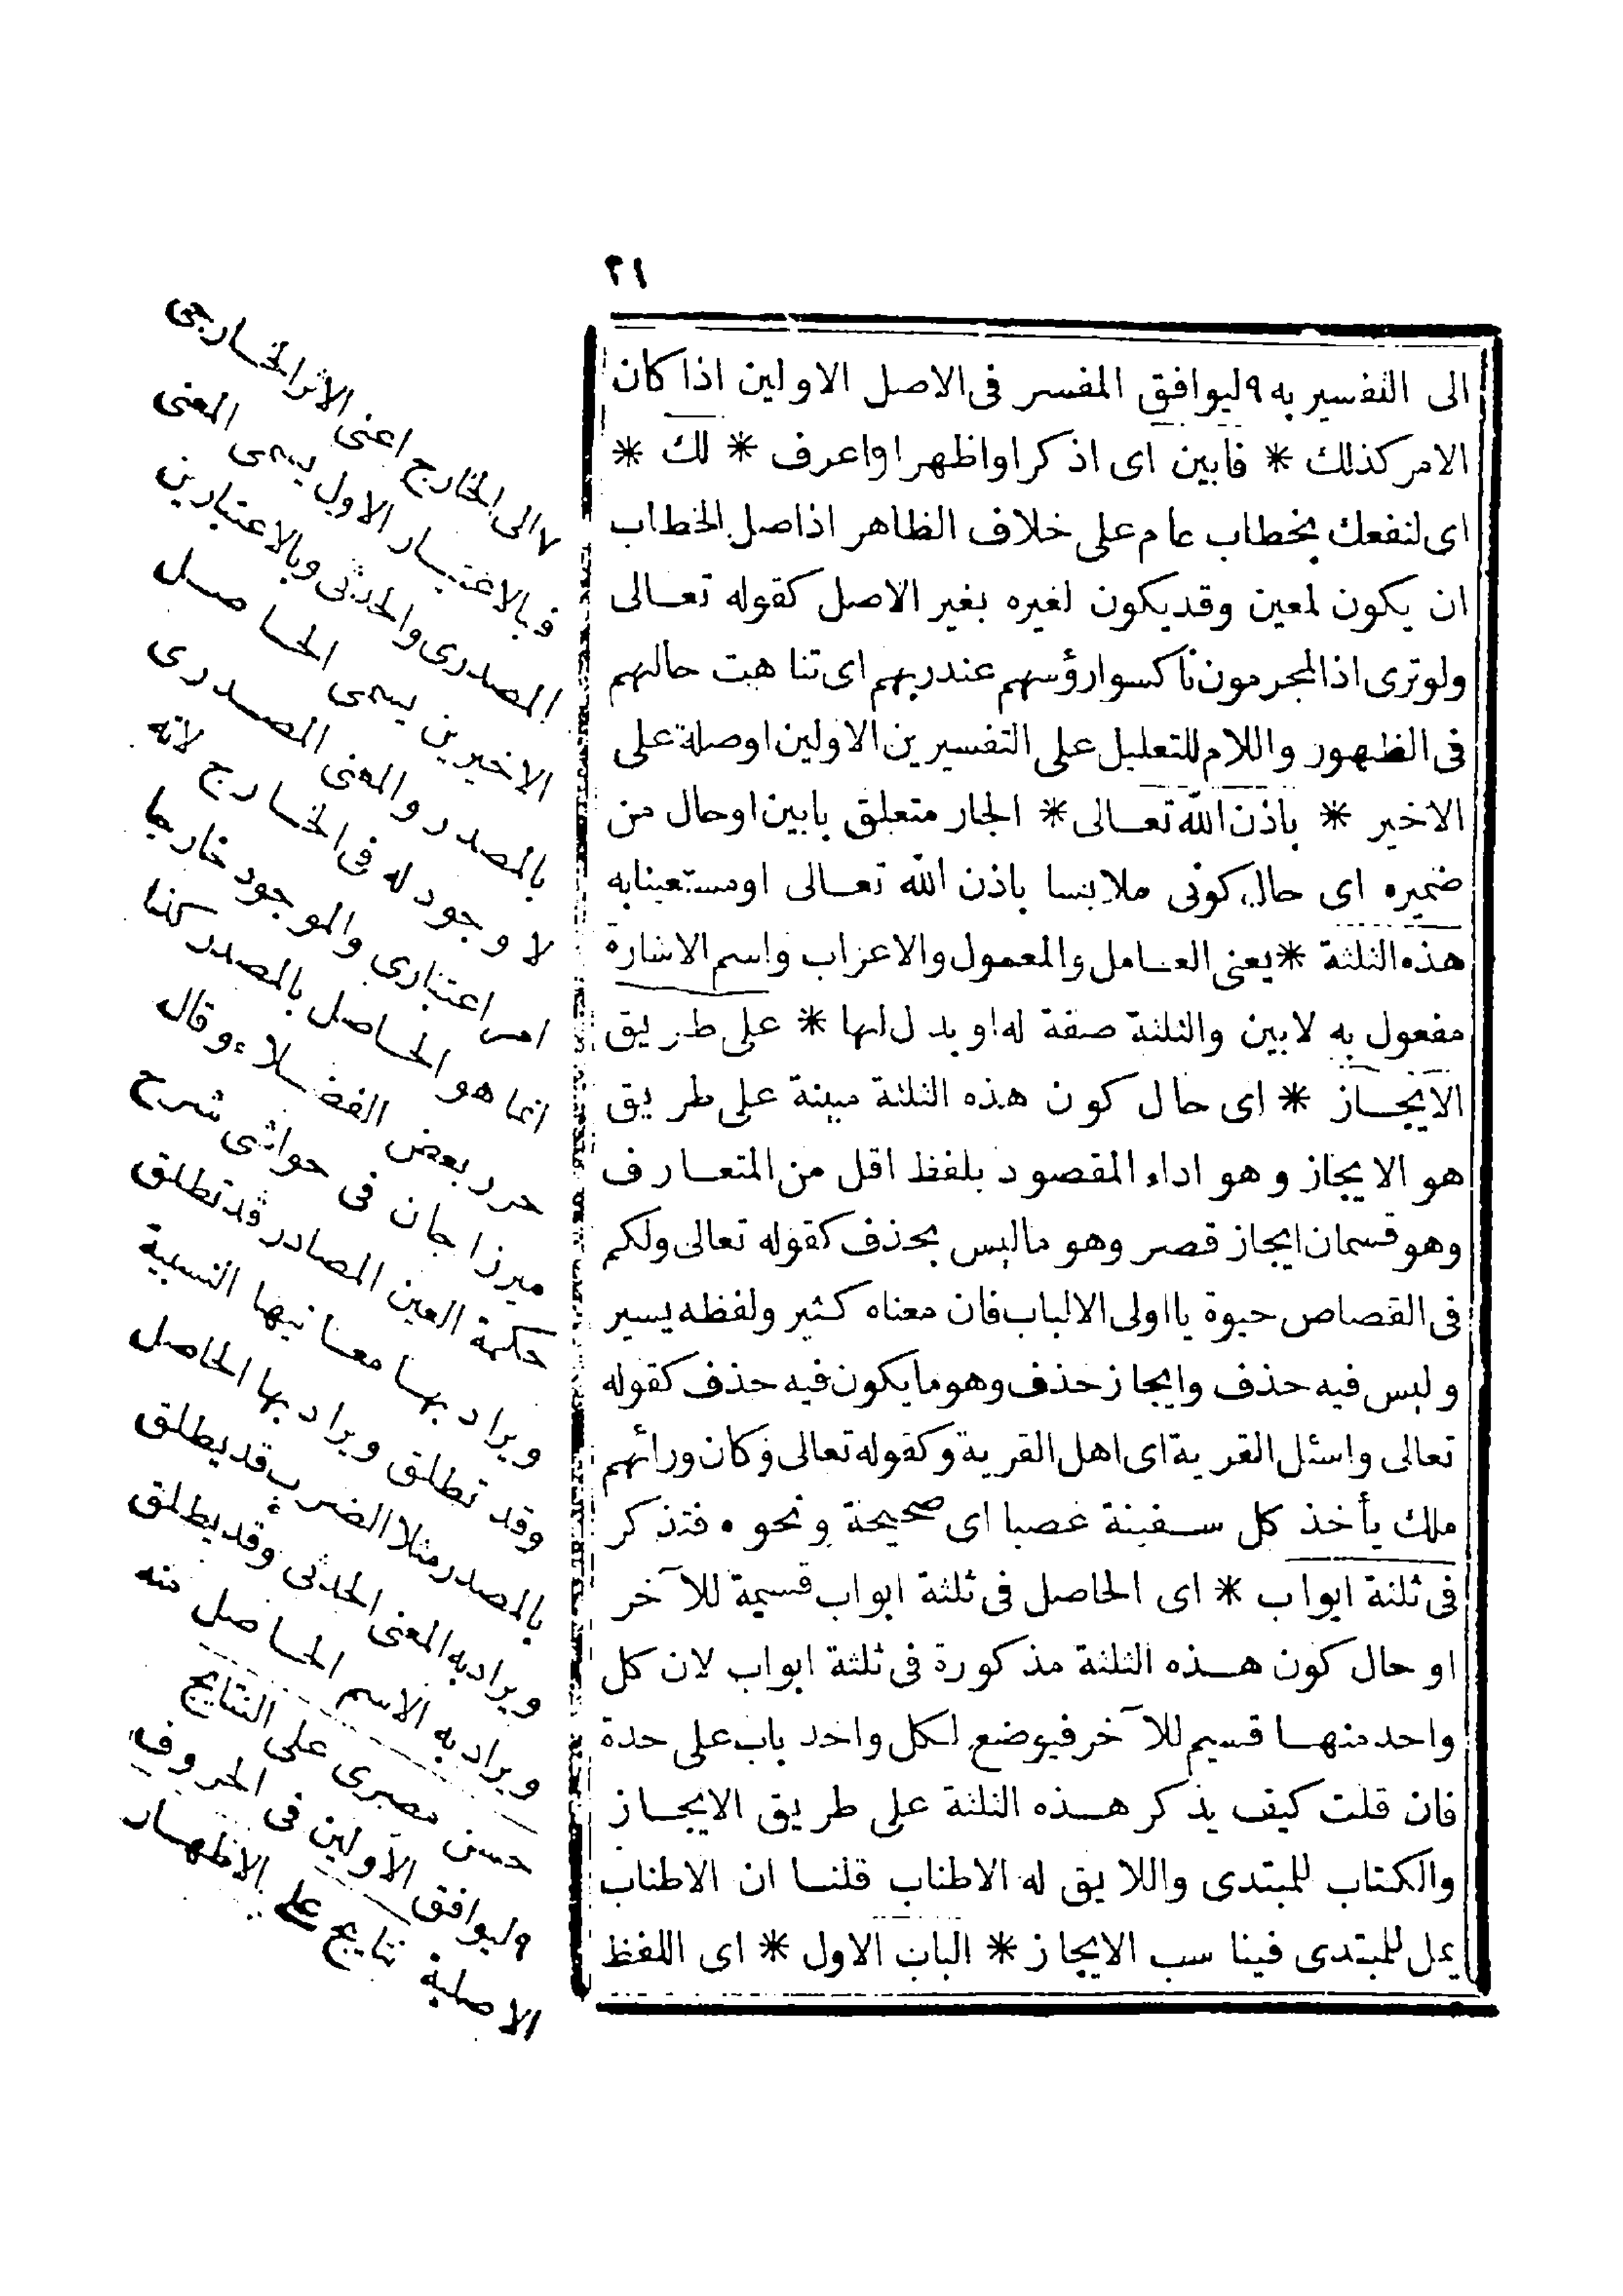 ٢١
الى التفسير به ٩ ليوافق المفسر فى الاصل الاولين اذا كان
الامر كذلك * فابين اى اذكر او اظهر او اعرف * لك *
اى لنفعك بخطاب عام على خلاف الظاهر اذ اصل الخطاب
ان يكون لمعين وقد يكون لغيره بغير الاصل كقوله تعـالى
ولو ترى اذ المجرمون ناكسوا رؤسهم عند ربهم اى تناهيت حالهم
فى الظهور واللام للتعليل على التفسيرين الاولين او صلة على
الاخير * باذن الله تعـالى * الجار متعلق بابين او حال من
ضميره اى حال كونى ملابسا باذن الله تعـالى او مستعينا به
هذه الثلثة * يعنى العـامل والمعمول والاعراب واسم الاشارة
مفعول به لابين والثلثة صفة له او بدل لها * على طريق
الايجـاز * اى حال كون هذه الثلثة مبينة على طريق
هو الايجاز وهو اداء المقصود بلفظ اقل من المتعـارف
وهو قسمان ايجاز قصر وهو ماليس بحذف كقوله تعالى ولكم
فى القصاص حيوة يا اولى الالباب فان معناه كثير ولفظه يسير
وليس فيه حذف وايجاز حذف وهو ما يكون فيه حذف كقوله
تعالى واسئل القرية اى اهل القرية وكقوله تعالى وكان ورائهم
ملك يأخذ كل سـفينة غصبا اى صحيحة ونحوه فتذكر
فى ثلثة ابواب * اى الحاصل فى ثلثة ابواب قسيمة للآخر
او حال كون هـذه الثلثة مذكورة فى ثلثة ابواب لان كل
واحد منهـا قسيم للآخر فيوضع لكل واحد باب على حدة
فان قلت كيف يذكر هـذه الثلثة على طريق الايجـاز
والكتاب للمبتدى واللايق له الاطناب قلنـا ان الاطناب
يمل للمبتدى فيناسب الايجاز * الباب الاول * اى اللفظ
٧ الى الخارج اعنى الاثر الخـارجى
فبالاعتبـار الاول يسمى المعنى
المصدرى والحدثى وبالاعتبارين
الاخيرين يسمى الحـاصـل
بالمصدر والمعنى المصـدرى
لا وجود له فى الخـارج لانه
امر اعتبارى والموجود خارجا
انما هو الحـاصل بالمصدر كهنا
حرر بعض الفضـلاء وقال
ميرزا جان فى حواشى شرح
حكمة العين المصادر قد تطلق
ويراد بهـا معـانيها النسبية
وقد تطلق ويراد بها الحاصل
بالمصدر مثلا الضرب قد يطلق
ويراد به المعنى الحدثى وقد يطلق
ويراد به الاسم الحـاصل منه
حسن مصرى على النتايج
٩ ليوافق الاولين فى الحروف
الاصلية نتايج على الاظهـار